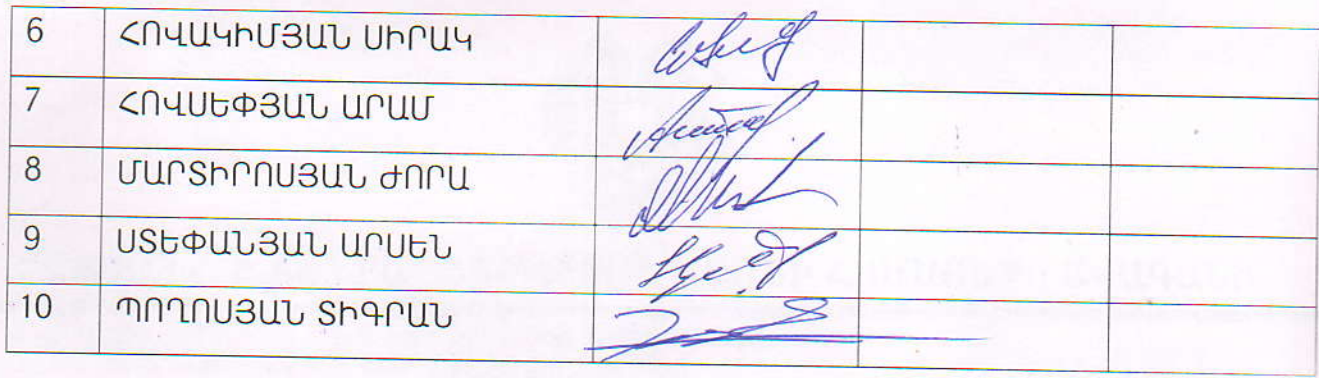 6 ՀՈՎԱԿԻՄՅԱՆ ՍԻՐԱԿ
7 ՀՈՎՍԵՓՅԱՆ ԱՐԱՄ
8 ՄԱՐՏԻՐՈՍՅԱՆ ԺՈՐԱ
9 ՍՏԵՓԱՆՅԱՆ ԱՐՍԵՆ
10 ՊՈՂՈՍՅԱՆ ՏԻԳՐԱՆ